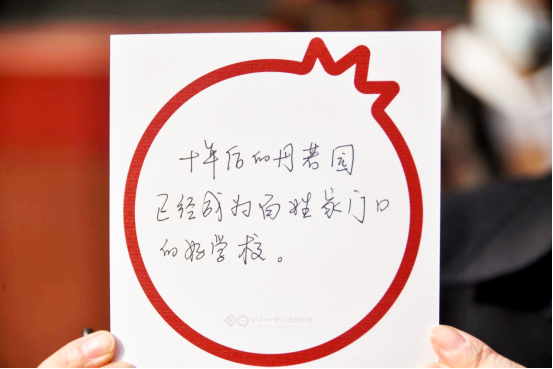 十年后的丹若园
已经成为百姓家门口
的好学校。